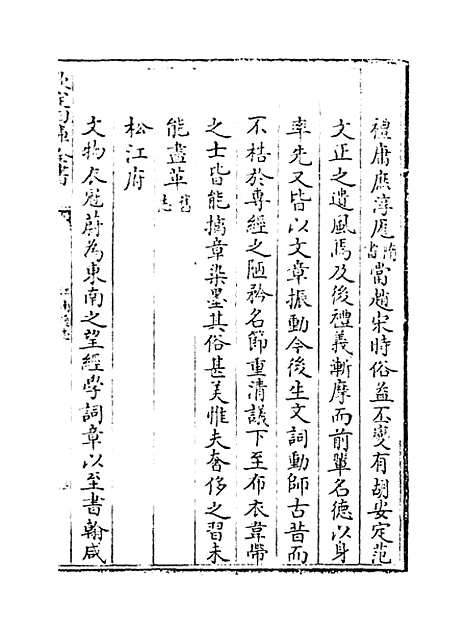 禮庸庶淳厖隋書當趙宋時俗益丕變有胡安定范
文正之遺風焉及後禮義漸摩而前輩名德以身
率先又皆以文章振動今後生文詞動師古昔而
不梏於專經之陋矜名節重清議下至布衣韋帶
之士皆能摛章染墨其俗甚美惟夫奢侈之習未
能盡革舊志
松江府
文物衣冠蔚為東南之望經學詞章以至書翰咸
欽定四庫全書